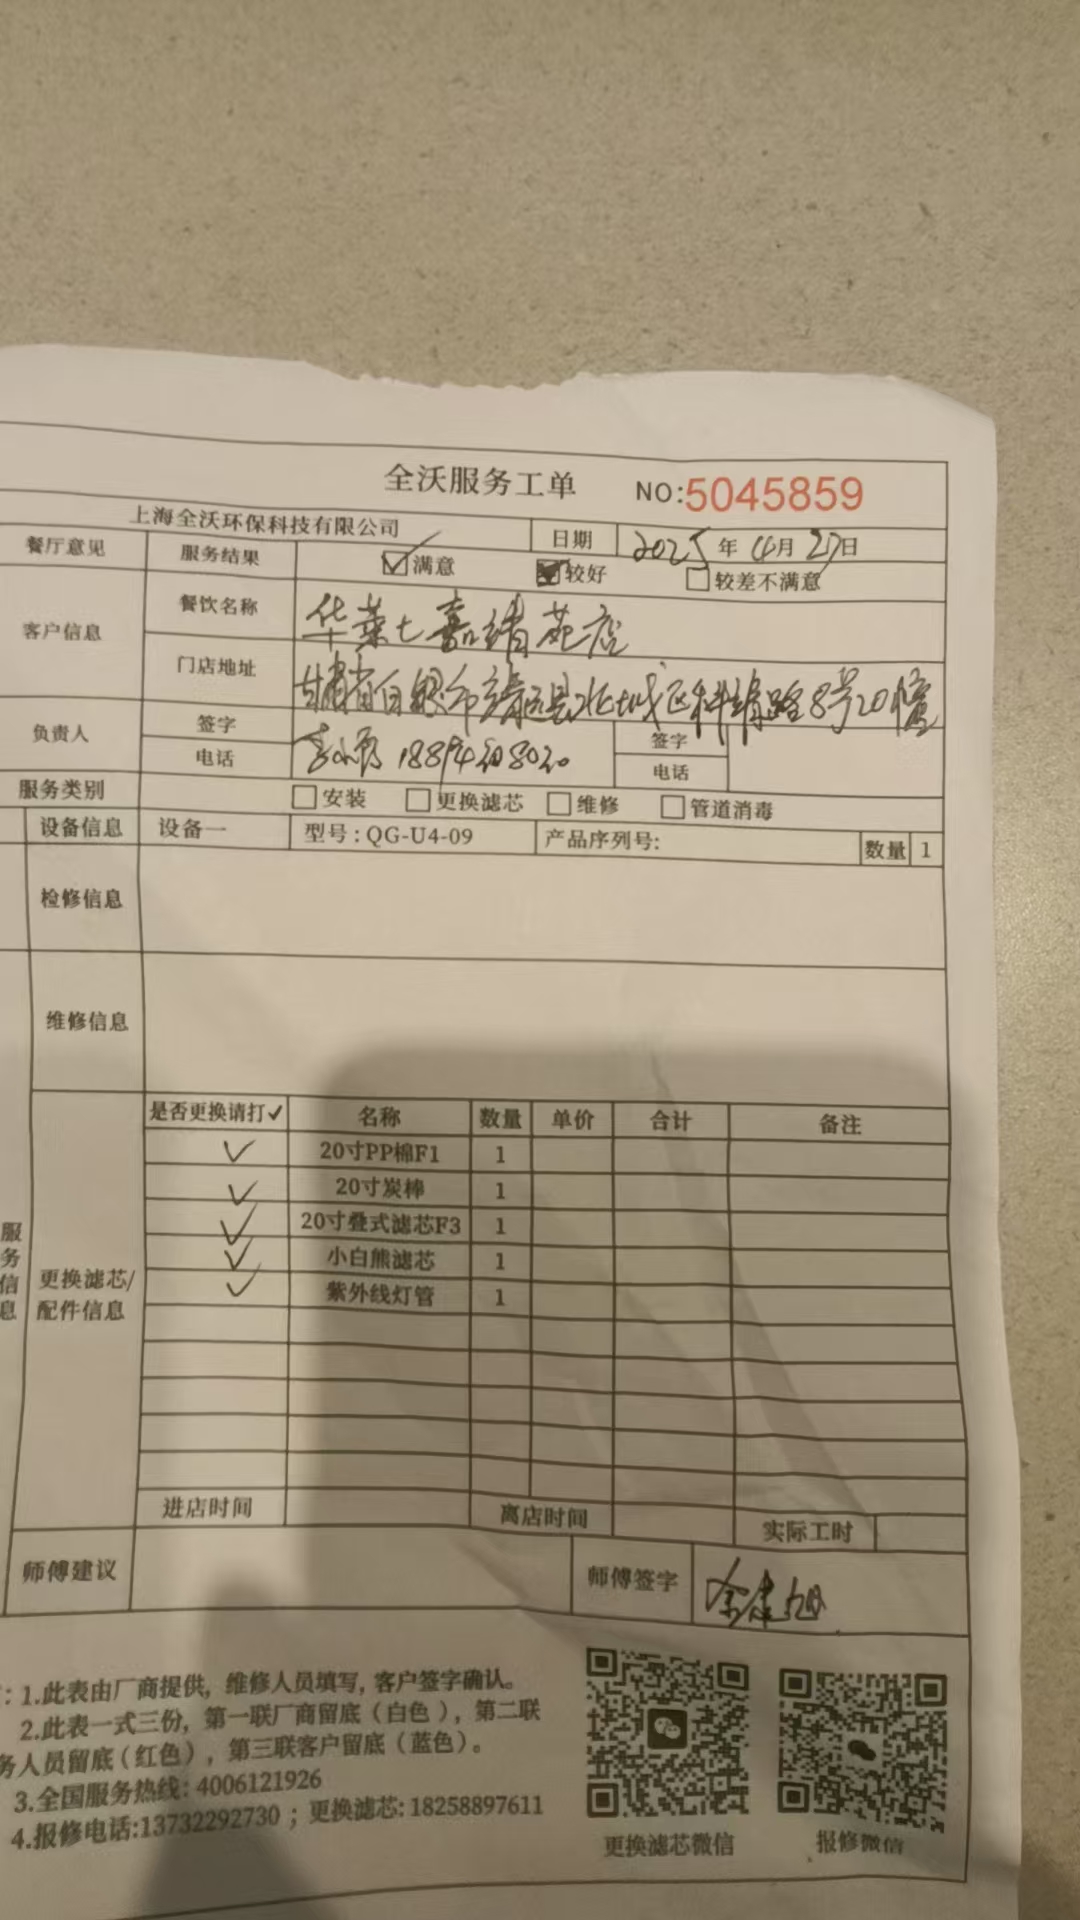 全沃服务工单 NO:5045859
上海全沃环保科技有限公司 日期 2025年4月27日
餐厅意见 服务结果 ☑满意 ☑较好 ☐较差不满意
客户信息 餐饮名称 华莱士嘉靖苑店
门店地址 甘肃省白银市靖远县北城区 路8号20幢
负责人 签字 签字
电话 电话
服务类别 ☐安装 ☐更换滤芯 ☐维修 ☐管道消毒
设备信息 设备一 型号:QG-U4-09 产品序列号: 数量 1
检修信息
维修信息
服务信息 更换滤芯/配件信息
是否更换请打✓ 名称 数量 单价 合计 备注
✓ 20寸PP棉F1 1
✓ 20寸炭棒 1
✓ 20寸叠式滤芯F3 1
✓ 小白熊滤芯 1
✓ 紫外线灯管 1
进店时间 离店时间 实际工时
师傅建议 师傅签字
:1.此表由厂商提供,维修人员填写,客户签字确认。
2.此表一式三份,第一联厂商留底(白色),第二联
务人员留底(红色),第三联客户留底(蓝色)。
3.全国服务热线:4006121926
4.报修电话:13732292730;更换滤芯:18258897611
更换滤芯微信 报修微信